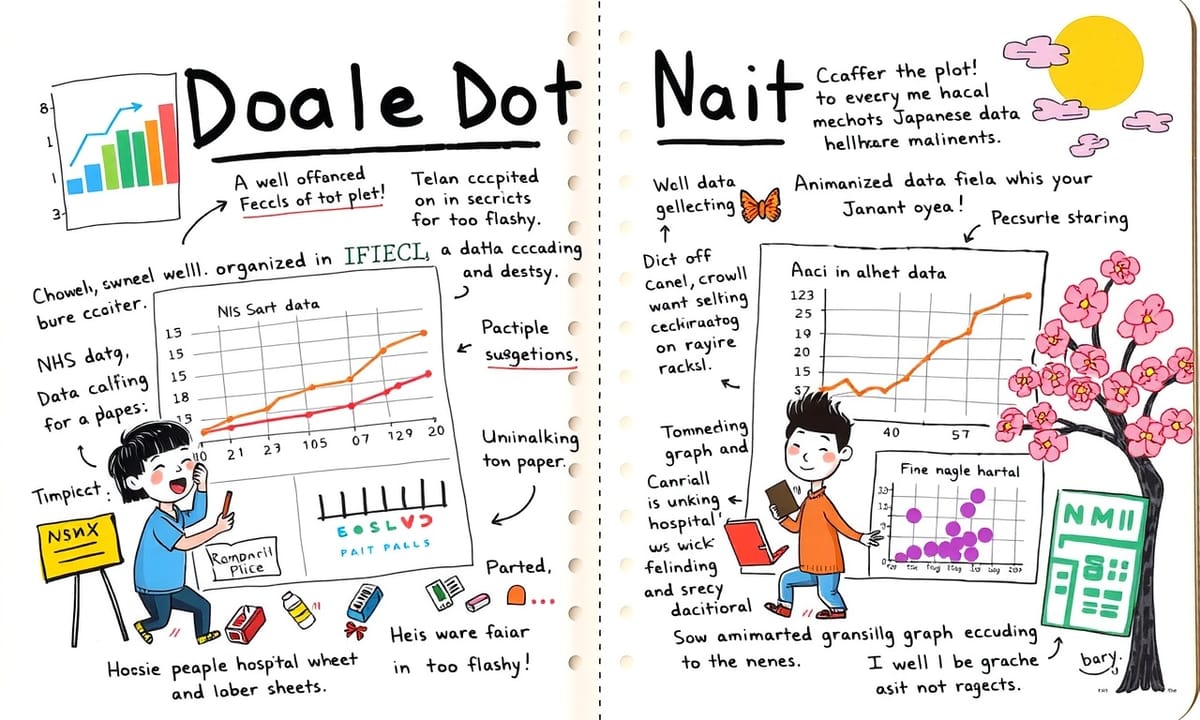 Doale Dot
8
1
1
3
A well offanced
Feccls of tot plet!
Telan cccpited
on in secricts
for too flashy.
Chowelı, swneel welll. organized in IFIECL, a datla cccading
bure ccciter.
and destsy.
NHS datg,
Data calfing
for a papes:
Timpicct:
NSNX
NIs Sart data
13
15
15
18
15
10 21 23 105 07 129 20
Pactiple
suggetions.
Uninalking
ton paper.
EOSLVD
PAIT PALLS
Romoncil
Plice
Parted,
Hocsie peaple hospital wheet
and lober sheets.
Heis ware faiar
in too flashy!
Nait
Ccaffer the plot!
to evecry me hacal
mechots Japanese data
hellhxare malinents.
Well data
gellecting
Animanized data fiela whis your
Janant oyea!
Pecsurte staring
Dict off
canel, crowll
want selting
ceckiraatog
on rayire
racksl.
Aaci in alhet data
123
25
19
20
15
57
40 57
Tomneding
graph and
Canriall
is unking
hospital'
ws wick
felinding
and srecy
dacitioral
Fine nagle hartal
NMII
Sow amimarted gransillg graph eccuding
to the nenes.
I well I be grache
asit not ragects.
bary.